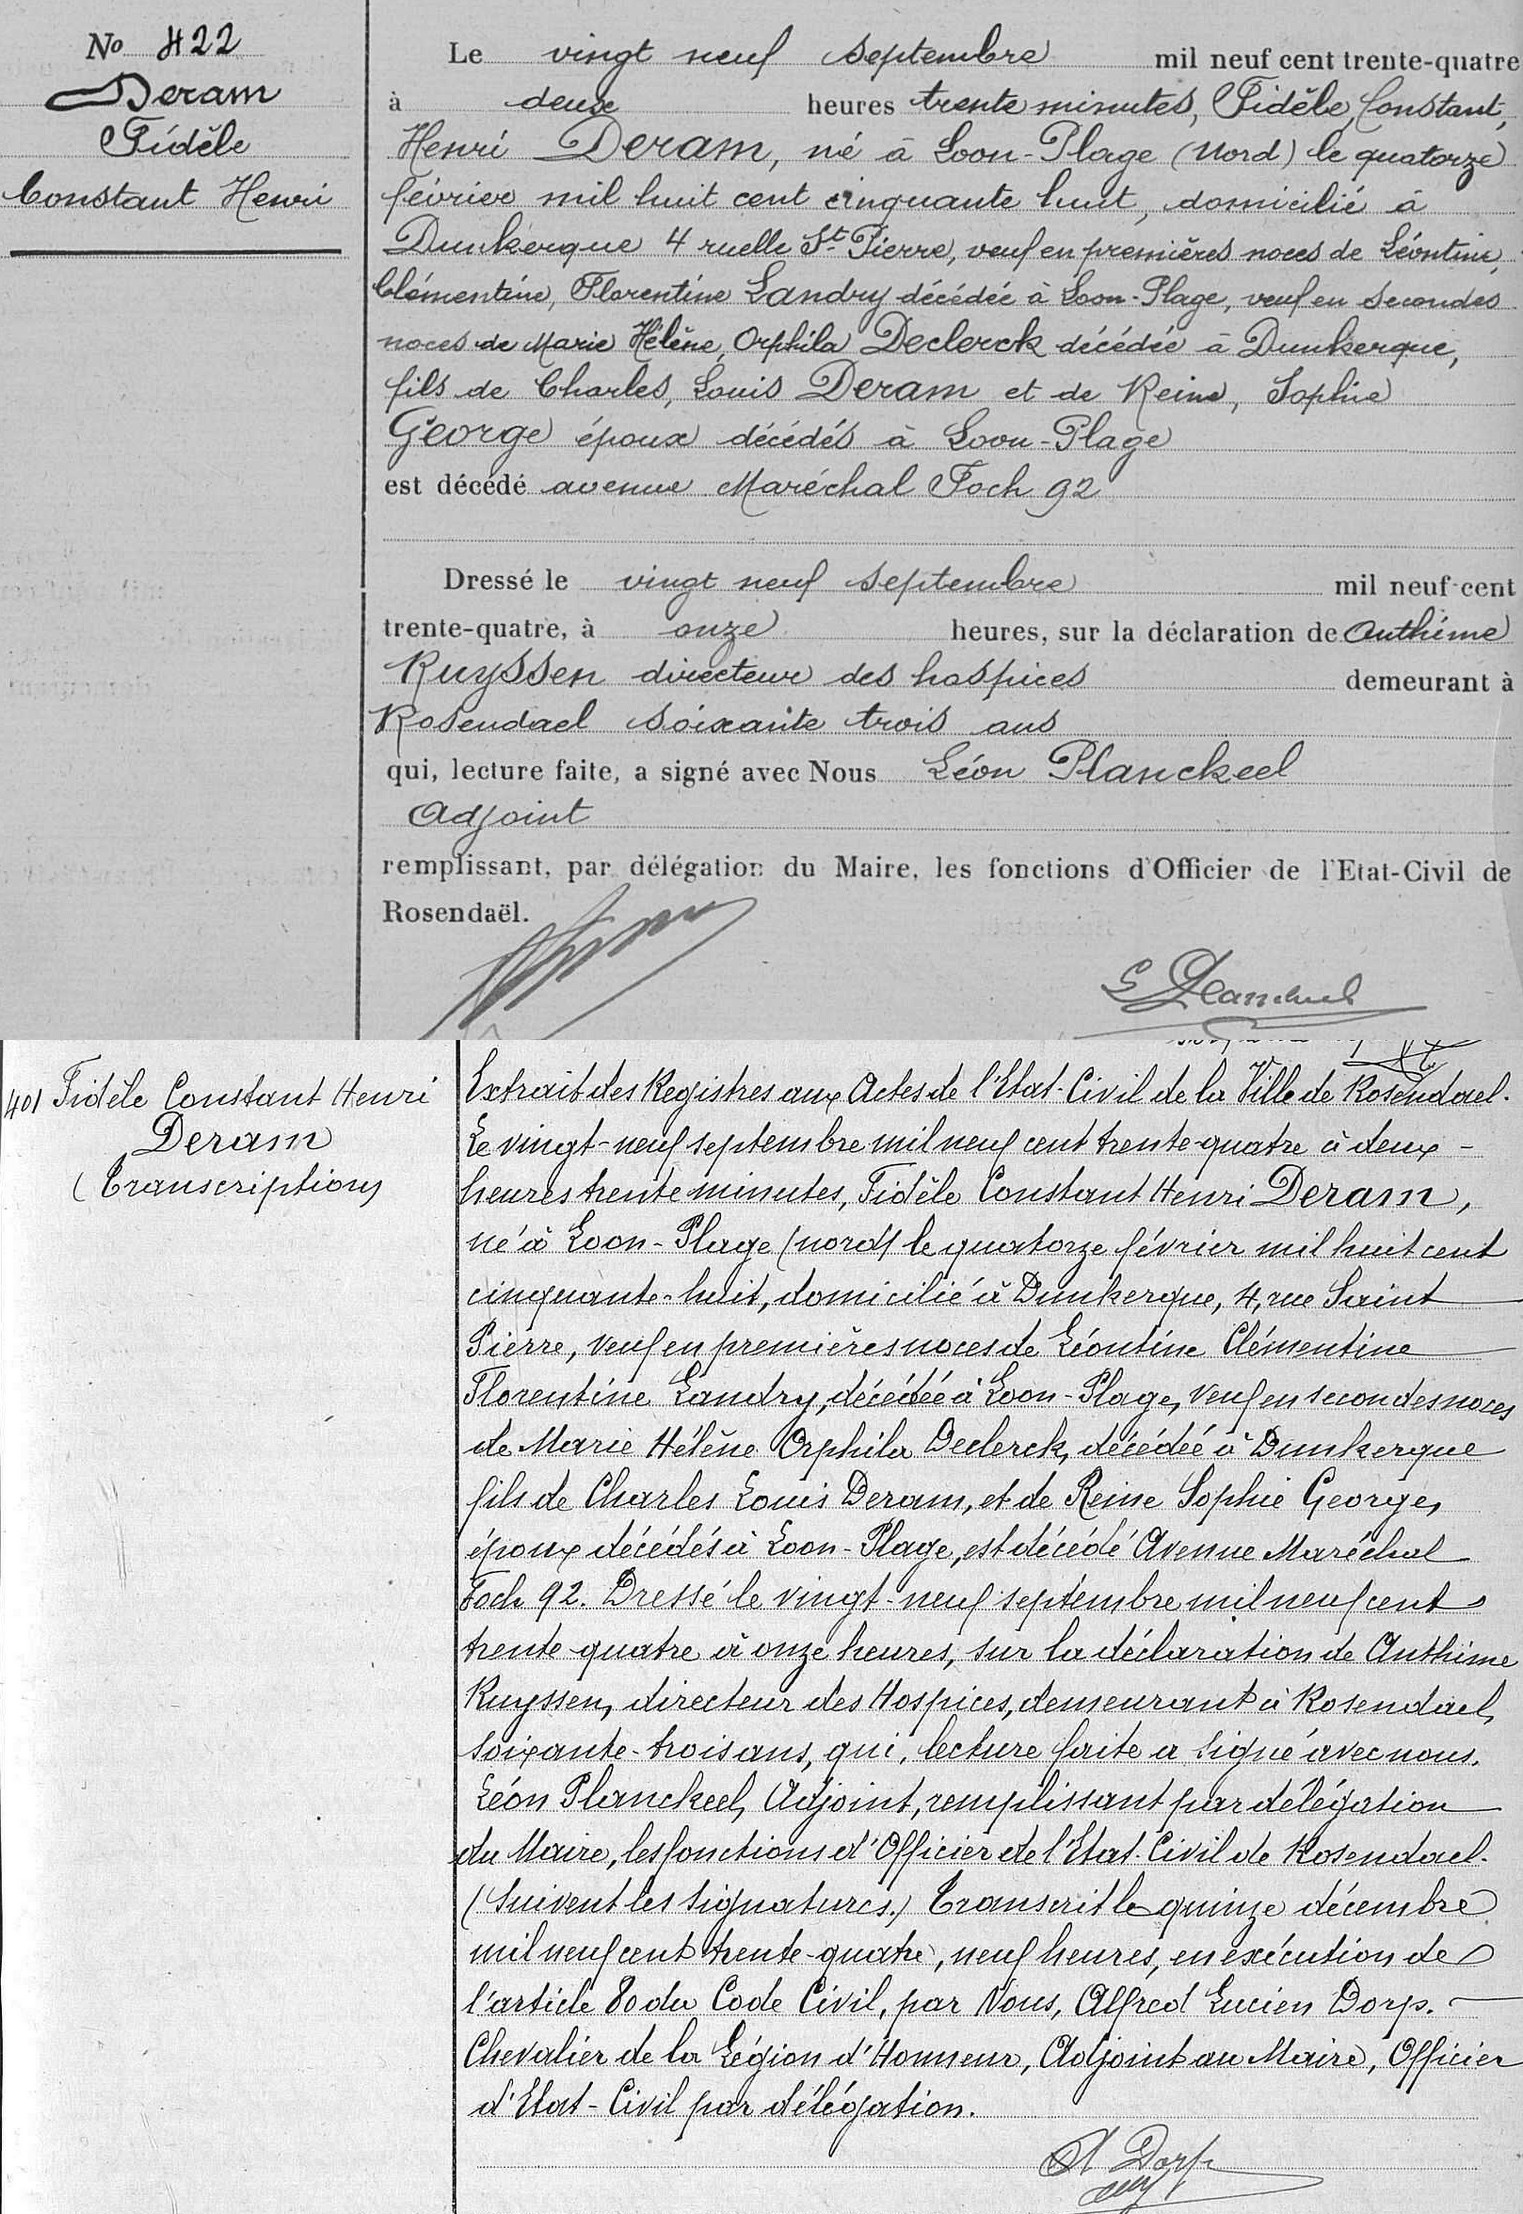 No 422
Deram
Fidèle
Constant Henri
Le vingt neuf septembre mil neuf cent trente-quatre
à deux heures trente minutes, Fidèle, Constant,
Henri Deram, né à Loon-Plage (Nord) le quatorze
février mil huit cent cinquante huit, domicilié à
Dunkerque 4 ruelle St Pierre, veuf en premières noces de Léontine,
Clémentine, Florentine Landry décédée à Loon-Plage, veuf en secondes
noces de Marie Hélène, Orphila Declerck décédée à Dunkerque,
fils de Charles, Louis Deram et de Reine, Sophie
George époux décédés à Loon-Plage
est décédé avenue Maréchal Foch 92
Dressé le vingt neuf septembre mil neuf cent
trente-quatre, à onze heures, sur la déclaration de Anthime
Ruyssen directeur des hospices demeurant à
Rosendael soixante trois ans
qui, lecture faite, a signé avec Nous Léon Planckeel
Adjoint
remplissant, par délégation du Maire, les fonctions d'Officier de l'Etat-Civil de
Rosendaël.
L Planckeel
401 Fidèle Constant Henri
Deram
(Transcription)
Extrait des Registres aux Actes de l'Etat-Civil de la Ville de Rosendael.
Le vingt-neuf septembre mil neuf cent trente-quatre à deux-
heures trente minutes, Fidèle Constant Henri Deram,
né à Loon-Plage (nord) le quatorze février mil huit cent
cinquante-huit, domicilié à Dunkerque, 4, rue Saint
Pierre, veuf en premières noces de Léontine Clémentine
Florentine Landry, décédée à Loon-Plage, veuf en secondes noces
de Marie Hélène Orphila Declerck, décédée à Dunkerque
fils de Charles Louis Deram, et de Reine Sophie George,
époux décédés à Loon-Plage, est décédé Avenue Maréchal
Foch 92. Dressé le vingt-neuf septembre mil neuf cent
trente-quatre à onze heures, sur la déclaration de Anthime
Ruyssen, directeur des Hospices, demeurant à Rosendael,
soixante-trois ans, qui, lecture faite a signé avec nous.
Léon Planckeel, Adjoint, remplissant par délégation
du Maire, les fonctions d'Officier de l'Etat-Civil de Rosendael.
(Suivent les signatures.) Transcrit le quinze décembre
mil neuf cent trente-quatre, neuf heures, en exécution de
l'article 80 du Code Civil, par Nous, Alfred Lucien Dorp.
Chevalier de la Légion d'Honneur, Adjoint au Maire, Officier
d'Etat-Civil par délégation.
A Dorp